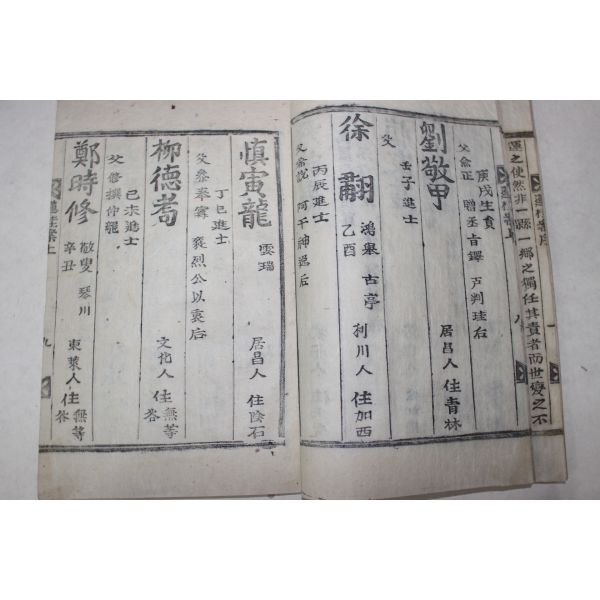 運之使然非一縣一鄕之獨任其責者而世變之不
一
庚戌生員
父僉正 贈丞旨鐸 戶判珪后
劉敬甲 居昌人 住青林
壬子進士
父
徐翮 鴻擧 古亭 利川人 住加西
乙酉
丙辰進士
父 阿干神逸后
愼寅龍 雲瑞 居昌人 住陰石
丁巳進士
父參奉 襄烈公以裒后
柳德蒿 文化人 住無等谷
己未進士
父修撰仲龍
鄭時修 敬叟 琴川 東萊人 住無等谷
辛丑
九